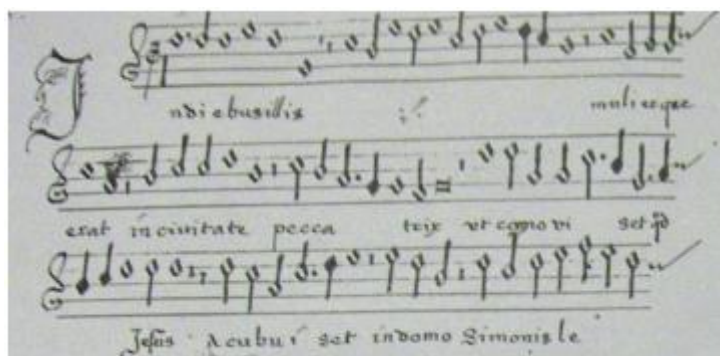 In diebus illis ij. mulier que
erat in civitate pecca trix ut cognovi set qd
Jesus Acubui set in domo Simonis le